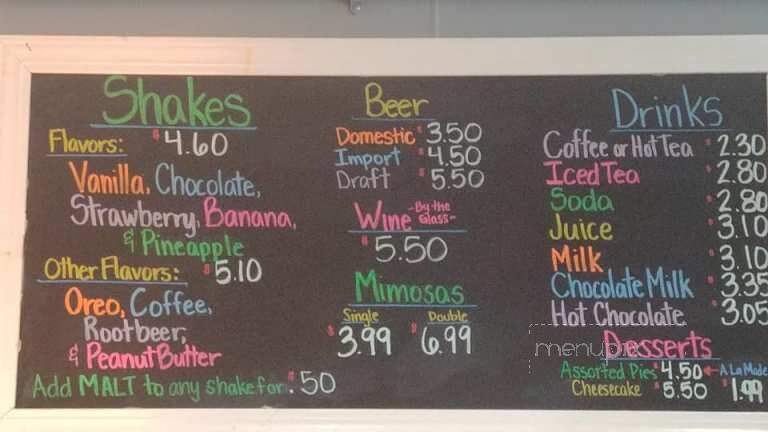 Shakes
Flavors: $4.60
Vanilla, Chocolate,
Strawberry, Banana,
& Pineapple
Other Flavors: $5.10
Oreo, Coffee,
Rootbeer,
& Peanut Butter
Add MALT to any shake for $.50
Beer
Domestic $3.50
Import $4.50
Draft $5.50
Wine -By the Glass-
$5.50
Mimosas
Single Double
$3.99 $6.99
Drinks
Coffee or Hot Tea $2.30
Iced Tea $2.80
Soda $2.80
Juice $3.10
Milk $3.10
Chocolate Milk $3.35
Hot Chocolate $3.05
Desserts
Assorted Pies $4.50 A La Mode
Cheesecake $5.50 $1.99